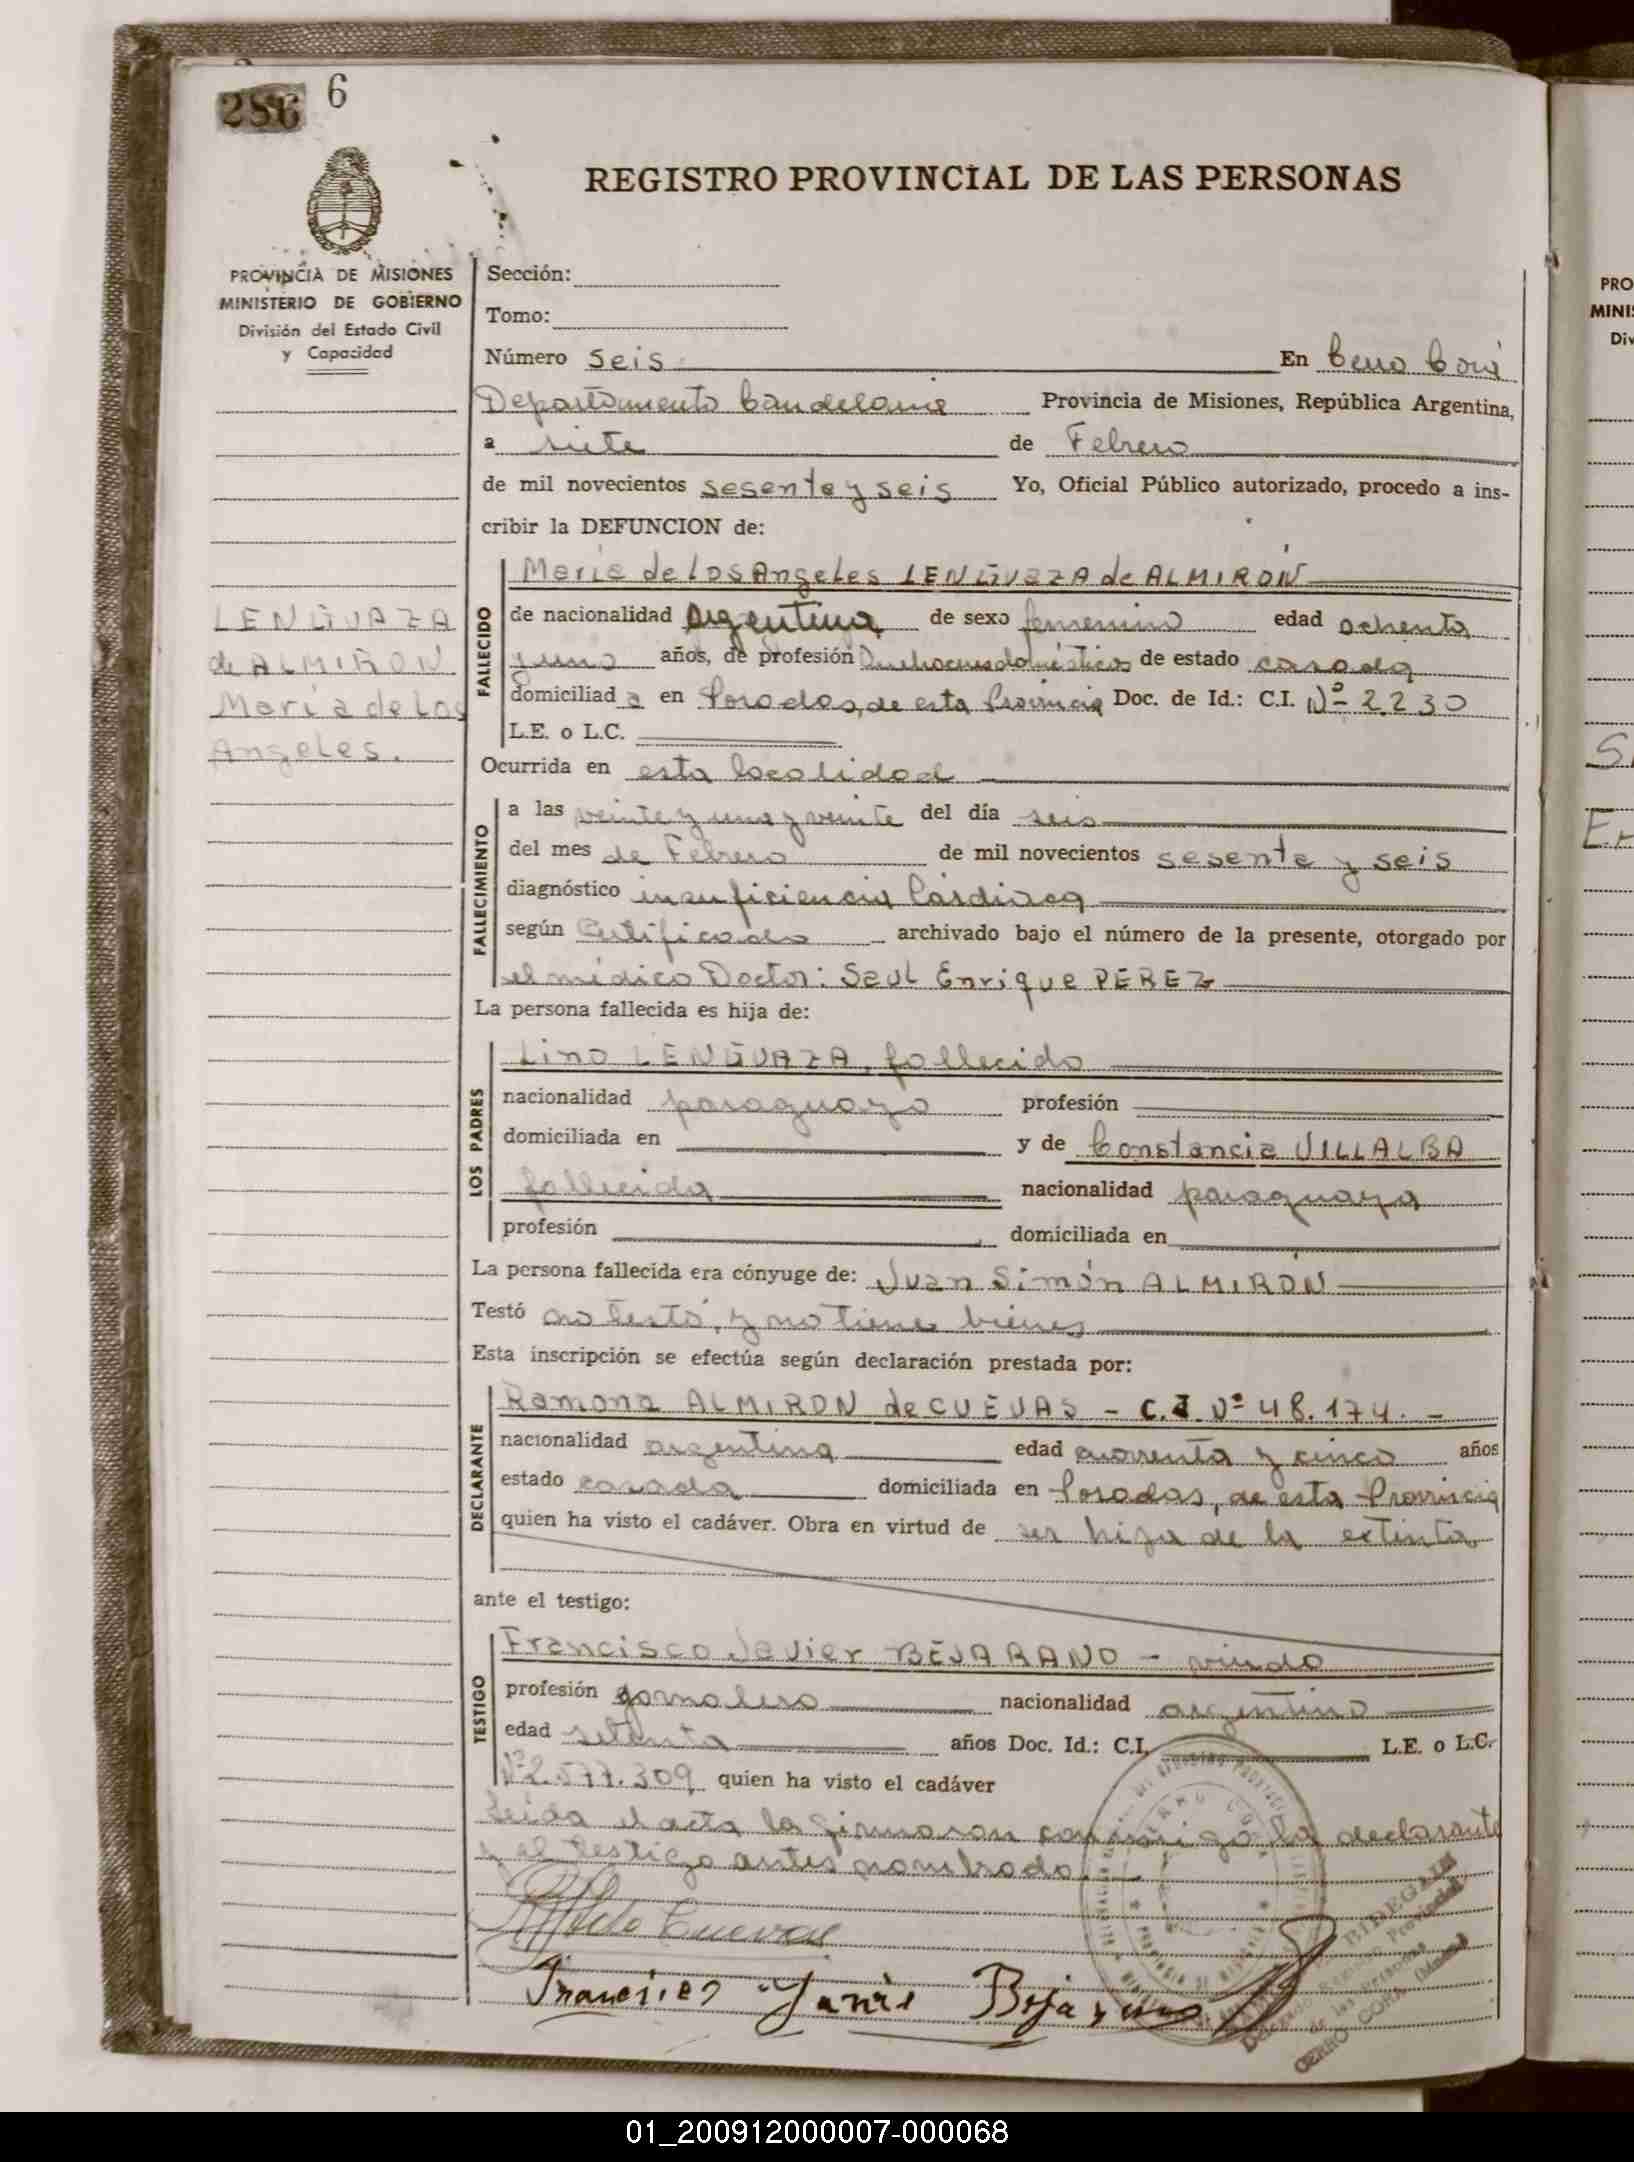 286 6
REGISTRO PROVINCIAL DE LAS PERSONAS
PROVINCIA DE MISIONES
MINISTERIO DE GOBIERNO
División del Estado Civil
y Capacidad
LENGUAZA
de ALMIRON
Maria de Los
Angeles.
Sección:
Tomo:
Número seis En Cerro Corá
Departamento Candelaria Provincia de Misiones, República Argentina,
a siete de Febrero
de mil novecientos sesenta y seis Yo, Oficial Público autorizado, procedo a ins-
cribir la DEFUNCION de:
FALLECIDO
Maria de Los Angeles LENGUAZA de ALMIRÓN
de nacionalidad argentina de sexo femenino edad ochenta
y uno años, de profesión Quehaceres domésticos de estado casada
domiciliad a en Posadas, de esta Provincia Doc. de Id.: C.I. Nº 2.230
L.E. o L.C.
Ocurrida en esta localidad
FALLECIMIENTO
a las veinte y una y veinte del día seis
del mes de Febrero de mil novecientos sesenta y seis
diagnóstico insuficiencia Cardiaca
según Certificado archivado bajo el número de la presente, otorgado por
el médico Doctor: Saul Enrique PEREZ
La persona fallecida es hija de:
LOS PADRES
Lino LENGUAZA, fallecido
nacionalidad paraguayo profesión
domiciliada en y de Constancia VILLALBA
fallecida nacionalidad paraguaya
profesión domiciliada en
La persona fallecida era cónyuge de: Juan Simón ALMIRÓN
Testó no testó, y no tiene bienes
Esta inscripción se efectúa según declaración prestada por:
DECLARANTE
Ramona ALMIRON de CUEVAS - C.I. Nº 48.174. -
nacionalidad argentina edad cuarenta y cinco años
estado casada domiciliada en Posadas, de esta Provincia
quien ha visto el cadáver. Obra en virtud de ser hija de la extinta
ante el testigo:
TESTIGO
Francisco Javier BEJARANO - viudo
profesión jornalero nacionalidad argentino
edad setenta años Doc. Id.: C.I. L.E. o L.C.
Nº 2.577.309, quien ha visto el cadáver
Leída el acta la firmaron conmigo la declarante
y el testigo antes nombrado.
Cuevas
Francisco Javier Bejarano
CERRO CORA
PRO
MINIS
Div
01_200912000007-000068